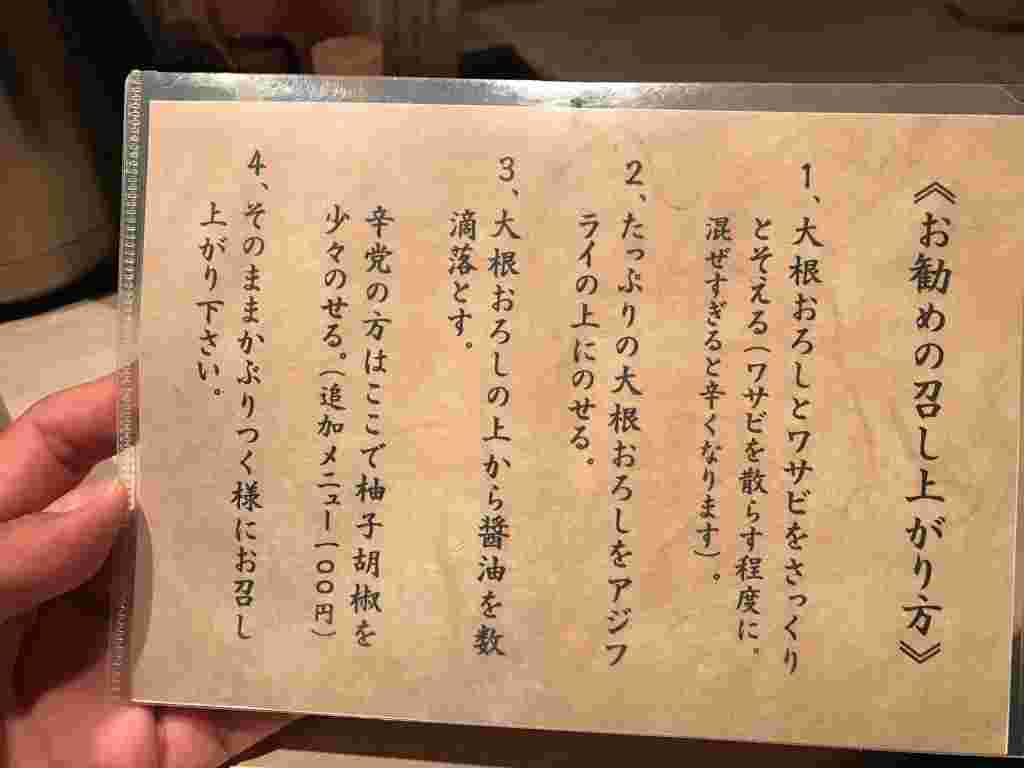 《お勧めの召し上がり方》
1、大根おろしとワサビをさっくり
とそえる(ワサビを散らす程度に。
混ぜすぎると辛くなります)。
2、たっぷりの大根おろしをアジフ
ライの上にのせる。
3、大根おろしの上から醤油を数
滴落とす。
辛党の方はここで柚子胡椒を
少々のせる。(追加メニュー一〇〇円)
4、そのままかぶりつく様にお召し
上がり下さい。